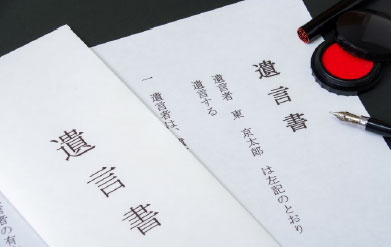 遺言書
遺言者　東　京太郎　は左記のとおり
遺言する
一　遺言者は、
遺言書
言者の有